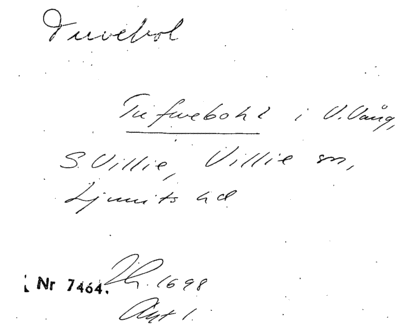 Duvebol
Tufwebohl i V. Vång,
S. Villie, Villie sn,
Ljunits hd
Nr 7464. Jb. 1698
Avt 1.